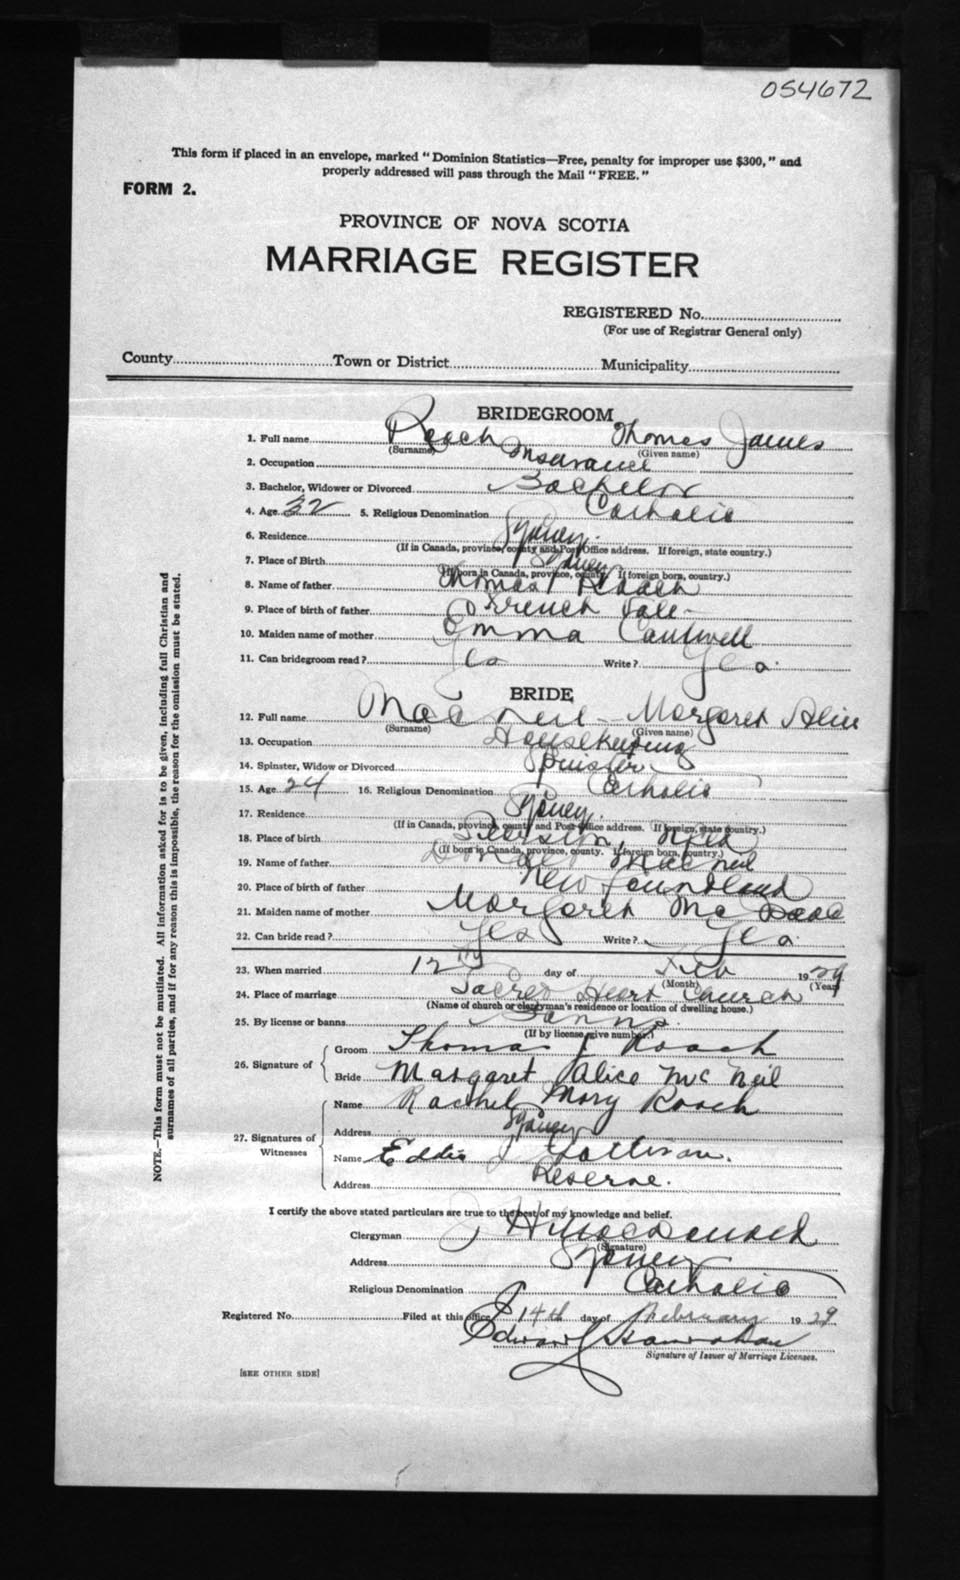 054672
This form if placed in an envelope, marked "Dominion Statistics—Free, penalty for improper use $300," and
properly addressed will pass through the Mail "FREE."
FORM 2.
PROVINCE OF NOVA SCOTIA
MARRIAGE REGISTER
REGISTERED No.
(For use of Registrar General only)
County Town or District Municipality
BRIDEGROOM
1. Full name Roach Thomas James
(Surname) (Given name)
2. Occupation Insurance
3. Bachelor, Widower or Divorced Bachelor
4. Age 32 5. Religious Denomination Catholic
6. Residence Sydney.
(If in Canada, province, county and Post Office address. If foreign, state country.)
7. Place of Birth Sydney
(If born in Canada, province, county. If foreign born, country.)
8. Name of father Thomas Roach
9. Place of birth of father French Vale
10. Maiden name of mother Emma Cantwell
11. Can bridegroom read? Yes Write? Yes.
BRIDE
12. Full name MacNeil - Margaret Alice
(Surname) (Given name)
13. Occupation Housekeeping
14. Spinster, Widow or Divorced Spinster
15. Age 24 16. Religious Denomination Catholic
17. Residence Sydney.
(If in Canada, province, county and Post Office address. If foreign, state country.)
18. Place of birth Nfld
(If born in Canada, province, county. If foreign born, country.)
19. Name of father Donald MacNeil
20. Place of birth of father Newfoundland
21. Maiden name of mother Margaret McIsaac
22. Can bride read? Yes Write? Yes.
23. When married 12th day of Feb 1929
(Month) (Year)
24. Place of marriage Sacred Heart Church
(Name of church or clergyman's residence or location of dwelling house.)
25. By license or banns Banns.
(If by license, give number.)
26. Signature of Groom Thomas J Roach
Bride Margaret Alice McNeil
27. Signatures of Witnesses Name Rachel Mary Roach
Address Sydney
Name Eddie J Sullivan.
Address Reserve.
I certify the above stated particulars are true to the best of my knowledge and belief.
Clergyman J H MacDonald
(Signature)
Address Sydney
Religious Denomination Catholic
Registered No. Filed at this office 14th day of February 1929
Edward Hanrahan
Signature of Issuer of Marriage Licenses.
[SEE OTHER SIDE]
NOTE.—This form must not be mutilated. All information asked for is to be given, including full Christian and
surnames of all parties, and if for any reason this is impossible, the reason for the omission must be stated.